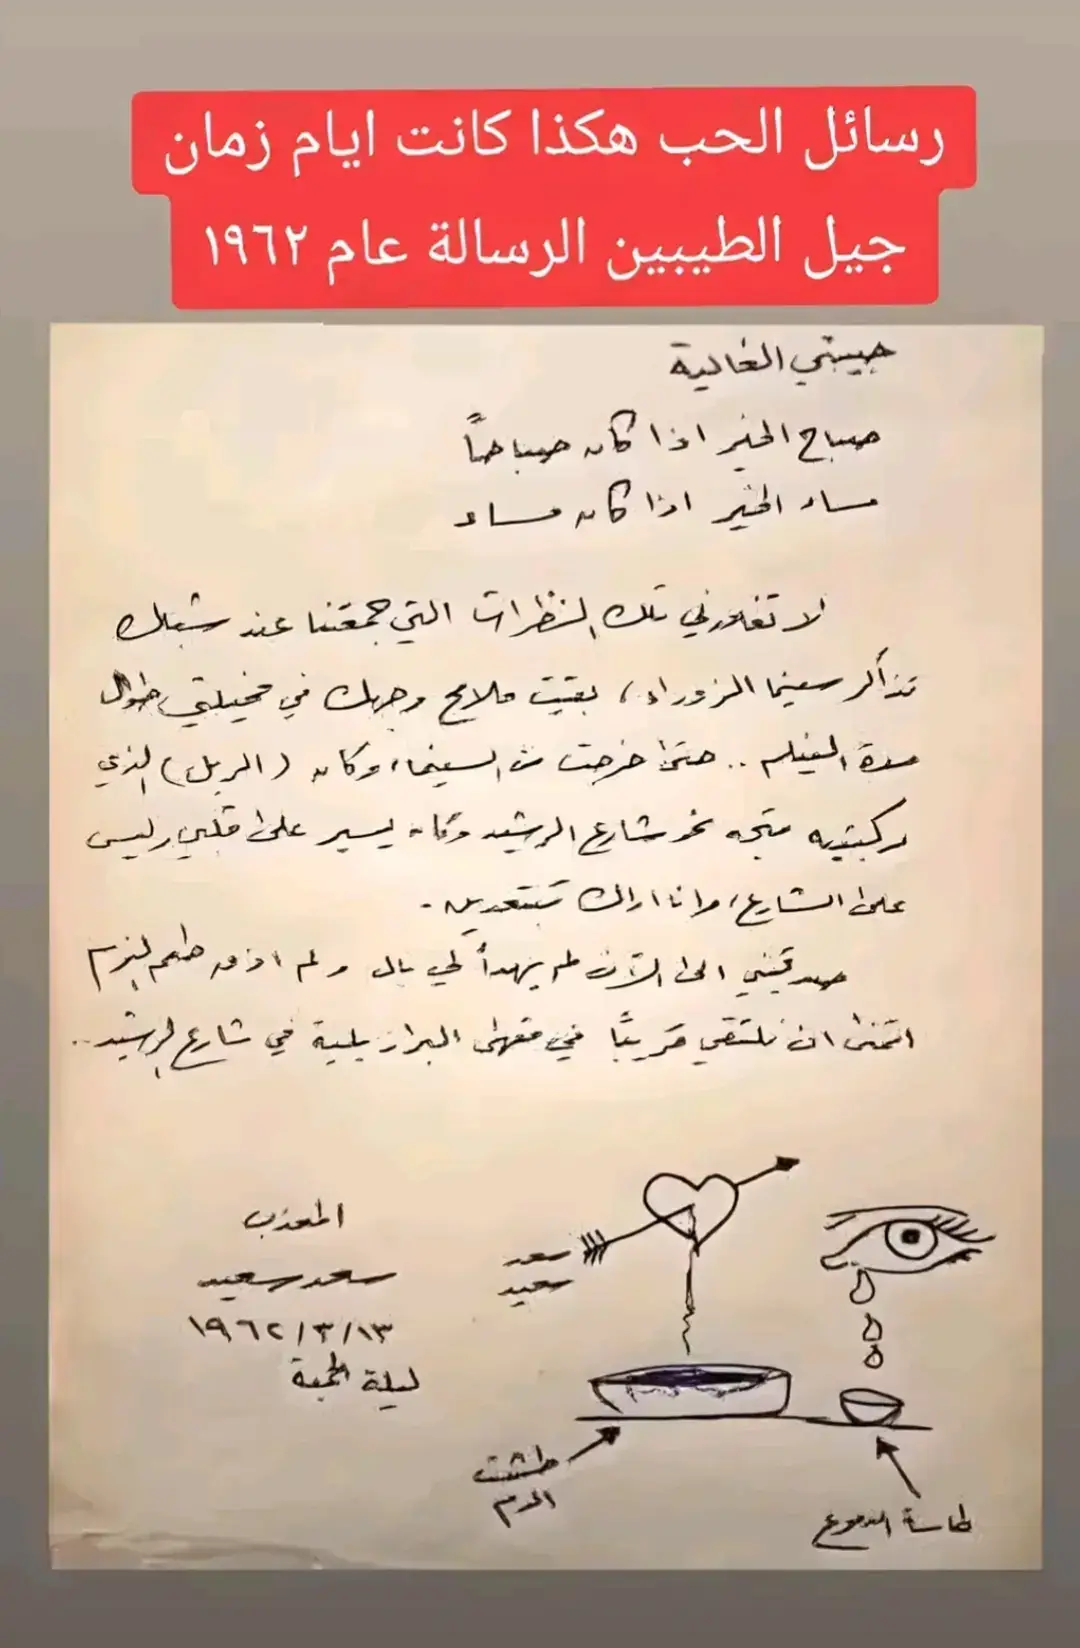 رسائل الحب هكذا كانت ايام زمان
جيل الطيبين الرسالة عام ١٩٦٢
حبيبتي الغالية
صباح الخير اذا كان صباحاً
مساء الخير اذا كان مساء
لا تغادرني تلك النظرات التي جمعتنا عند شباك
تذاكر سينما الزوراء، بقيت ملامح وجهك في مخيلتي طوال
مدة الفيلم .. حتى خرجت من السينما، وكان (الربل) الذي
ركبتيه متجه نحو شارع الرشيد وكان يسير على قلبي وليس
على الشارع، وانا اراك تبتعدين.
صدقيني الى الآن لم يهدأ لي بال ولم اذق طعم النوم
اتمنى ان نلتقي قريباً في مقهى البرازيلية في شارع الرشيد..
المعذب
سعد سعيد
١٩٦٢/٣/١٣
ليلة الجمعة
سعد
سعيد
طشت
الدم
طاسة الدموع